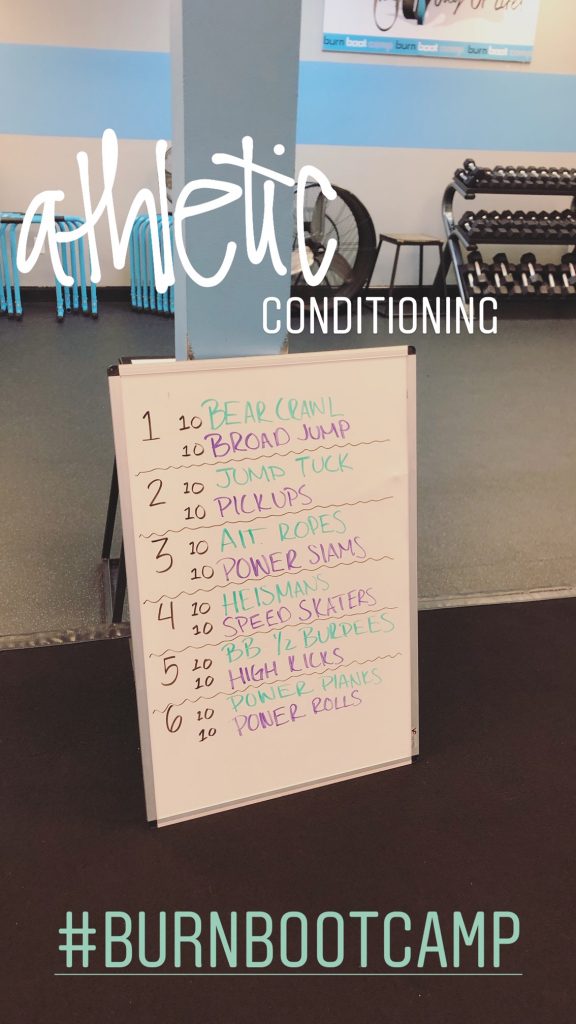 burn boot camp burn boot camp burn boot camp
athletic
CONDITIONING
1 10 BEAR CRAWL
10 BROAD JUMP
2 10 JUMP TUCK
10 PICKUPS
3 10 Alt. ROPES
10 POWER SlAMS
4 10 HEISMANS
10 SPEED SKATERS
5 10 BB 1/2 BURPEES
10 HIGH KICKS
6 10 POWER PlANKS
10 POWER ROLLS
#BURNBOOTCAMP